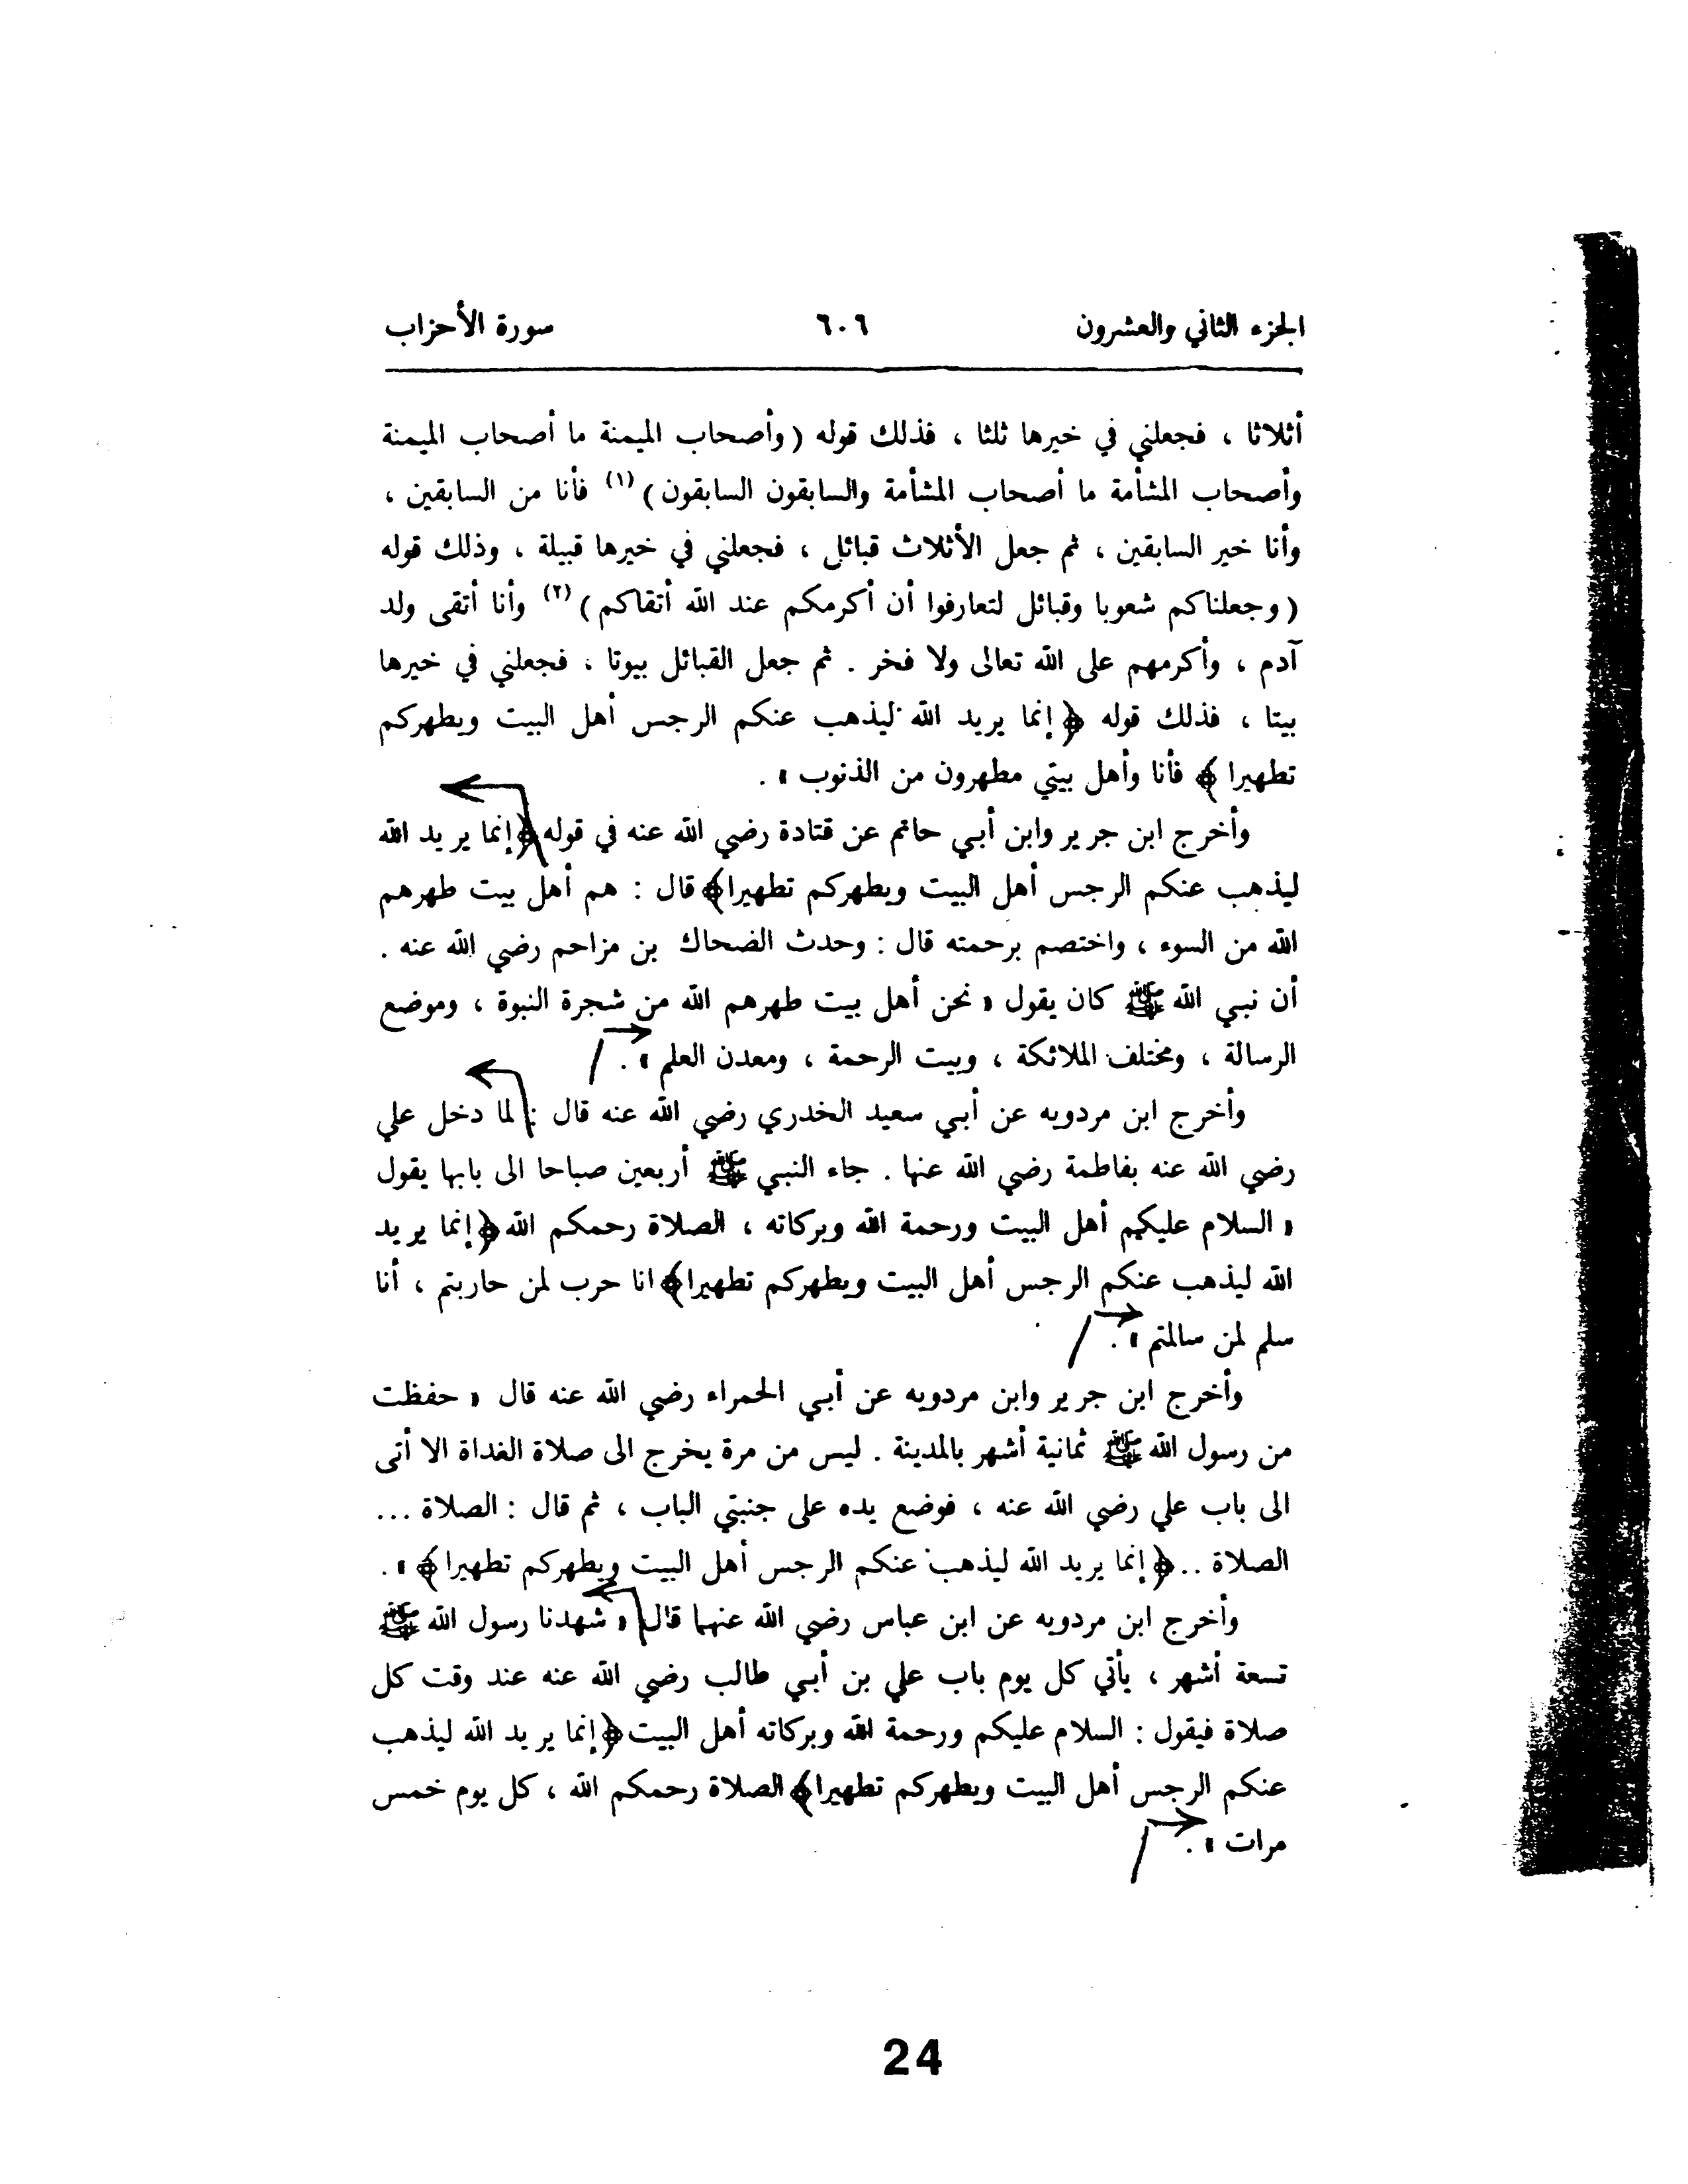 الجزء الثاني والعشرون ٦٠٦ سورة الأحزاب
أثلاثا ، فجعلني في خيرها ثلثا ، فذلك قوله ( وأصحاب الميمنة ما أصحاب الميمنة
وأصحاب المشأمة ما أصحاب المشأمة والسابقون السابقون ) (١) فأنا من السابقين ،
وأنا خير السابقين ، ثم جعل الأثلاث قبائل ، فجعلني في خيرها قبيلة ، وذلك قوله
( وجعلناكم شعوبا وقبائل لتعارفوا أن أكرمكم عند الله أتقاكم ) (٢) وأنا أتقى ولد
آدم ، وأكرمهم على الله تعالى ولا فخر . ثم جعل القبائل بيوتا ، فجعلني في خيرها
بيتا ، فذلك قوله ﴿ إنما يريد الله ليذهب عنكم الرجس أهل البيت ويطهركم
تطهيرا ﴾ فأنا وأهل بيتي مطهرون من الذنوب » .
وأخرج ابن جرير وابن أبي حاتم عن قتادة رضي الله عنه في قوله ﴿ إنما يريد الله
ليذهب عنكم الرجس أهل البيت ويطهركم تطهيرا ﴾ قال : هم أهل بيت طهرهم
الله من السوء ، واختصم برحمته قال : وحدث الضحاك بن مزاحم رضي الله عنه .
أن نبي الله ﷺ كان يقول « نحن أهل بيت طهرهم الله من شجرة النبوة ، وموضع
الرسالة ، ومختلف الملائكة ، وبيت الرحمة ، ومعدن العلم » .
وأخرج ابن مردويه عن أبي سعيد الخدري رضي الله عنه قال : لما دخل علي
رضي الله عنه بفاطمة رضي الله عنها . جاء النبي ﷺ أربعين صباحا الى بابها يقول
« السلام عليكم أهل البيت ورحمة الله وبركاته ، الصلاة رحمكم الله ﴿ إنما يريد
الله ليذهب عنكم الرجس أهل البيت ويطهركم تطهيرا ﴾ انا حرب لمن حاربتم ، أنا
سلم لمن سالمتم » .
وأخرج ابن جرير وابن مردويه عن أبي الحمراء رضي الله عنه قال « حفظت
من رسول الله ﷺ ثمانية أشهر بالمدينة . ليس من مرة يخرج الى صلاة الغداة الا أتى
الى باب علي رضي الله عنه ، فوضع يده على جنبتي الباب ، ثم قال : الصلاة ...
الصلاة .. ﴿ إنما يريد الله ليذهب عنكم الرجس أهل البيت ويطهركم تطهيرا ﴾ » .
وأخرج ابن مردويه عن ابن عباس رضي الله عنهما قال « شهدنا رسول الله ﷺ
تسعة أشهر ، يأتي كل يوم باب علي بن أبي طالب رضي الله عنه عند وقت كل
صلاة فيقول : السلام عليكم ورحمة الله وبركاته أهل البيت ﴿ إنما يريد الله ليذهب
عنكم الرجس أهل البيت ويطهركم تطهيرا ﴾ الصلاة رحمكم الله ، كل يوم خمس
مرات » .
24